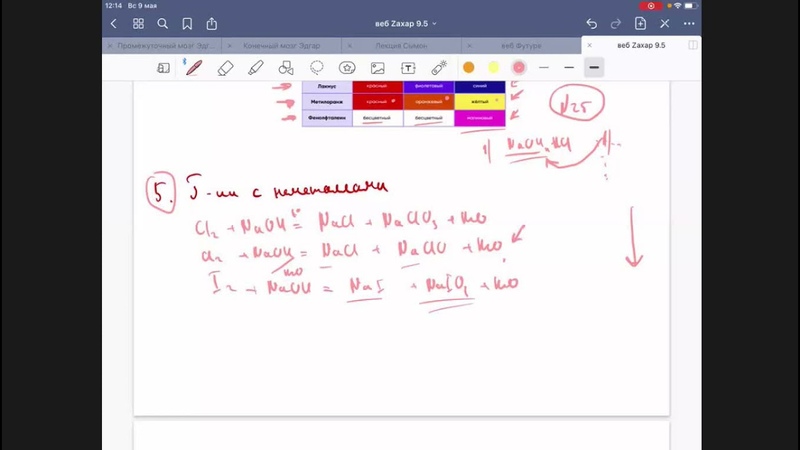 12:14 Вс 9 мая
веб Zахар 9.5
Промежуточный мозг Эдг...
Конечный мозг Эдгар
Лекция Схемки
веб Футуре
веб Zахар 9.5
Лакмус красный фиолетовый синий
Метилоранж красный оранжевый жёлтый
Фенолфталеин бесцветный бесцветный малиновый
N25
1) NaOH, HCl
5. Г-ии с неметаллами
Cl2 + NaOH t° = NaCl + NaClO3 + H2O
Cl2 + NaOH = NaCl + NaClO + H2O
I2 + NaOH = NaI + NaIO3 + H2O